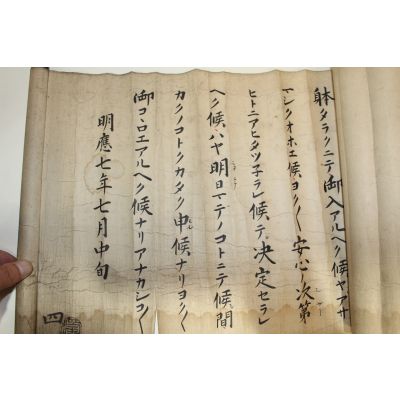 躰タラクニテ御入アルヘク候ヤアサ
マシクオホエ候ヨク〱安心ノ次第
ヒトニアヒタツ子ラレ候テ決定セラレ
ヘク候ハヤ明日マデノコトニテ候間
カクノコトクカタク申候ナリヨク〱
御コヽロエアルヘク候ナリアナカシコ〱
明應七年七月中旬
四